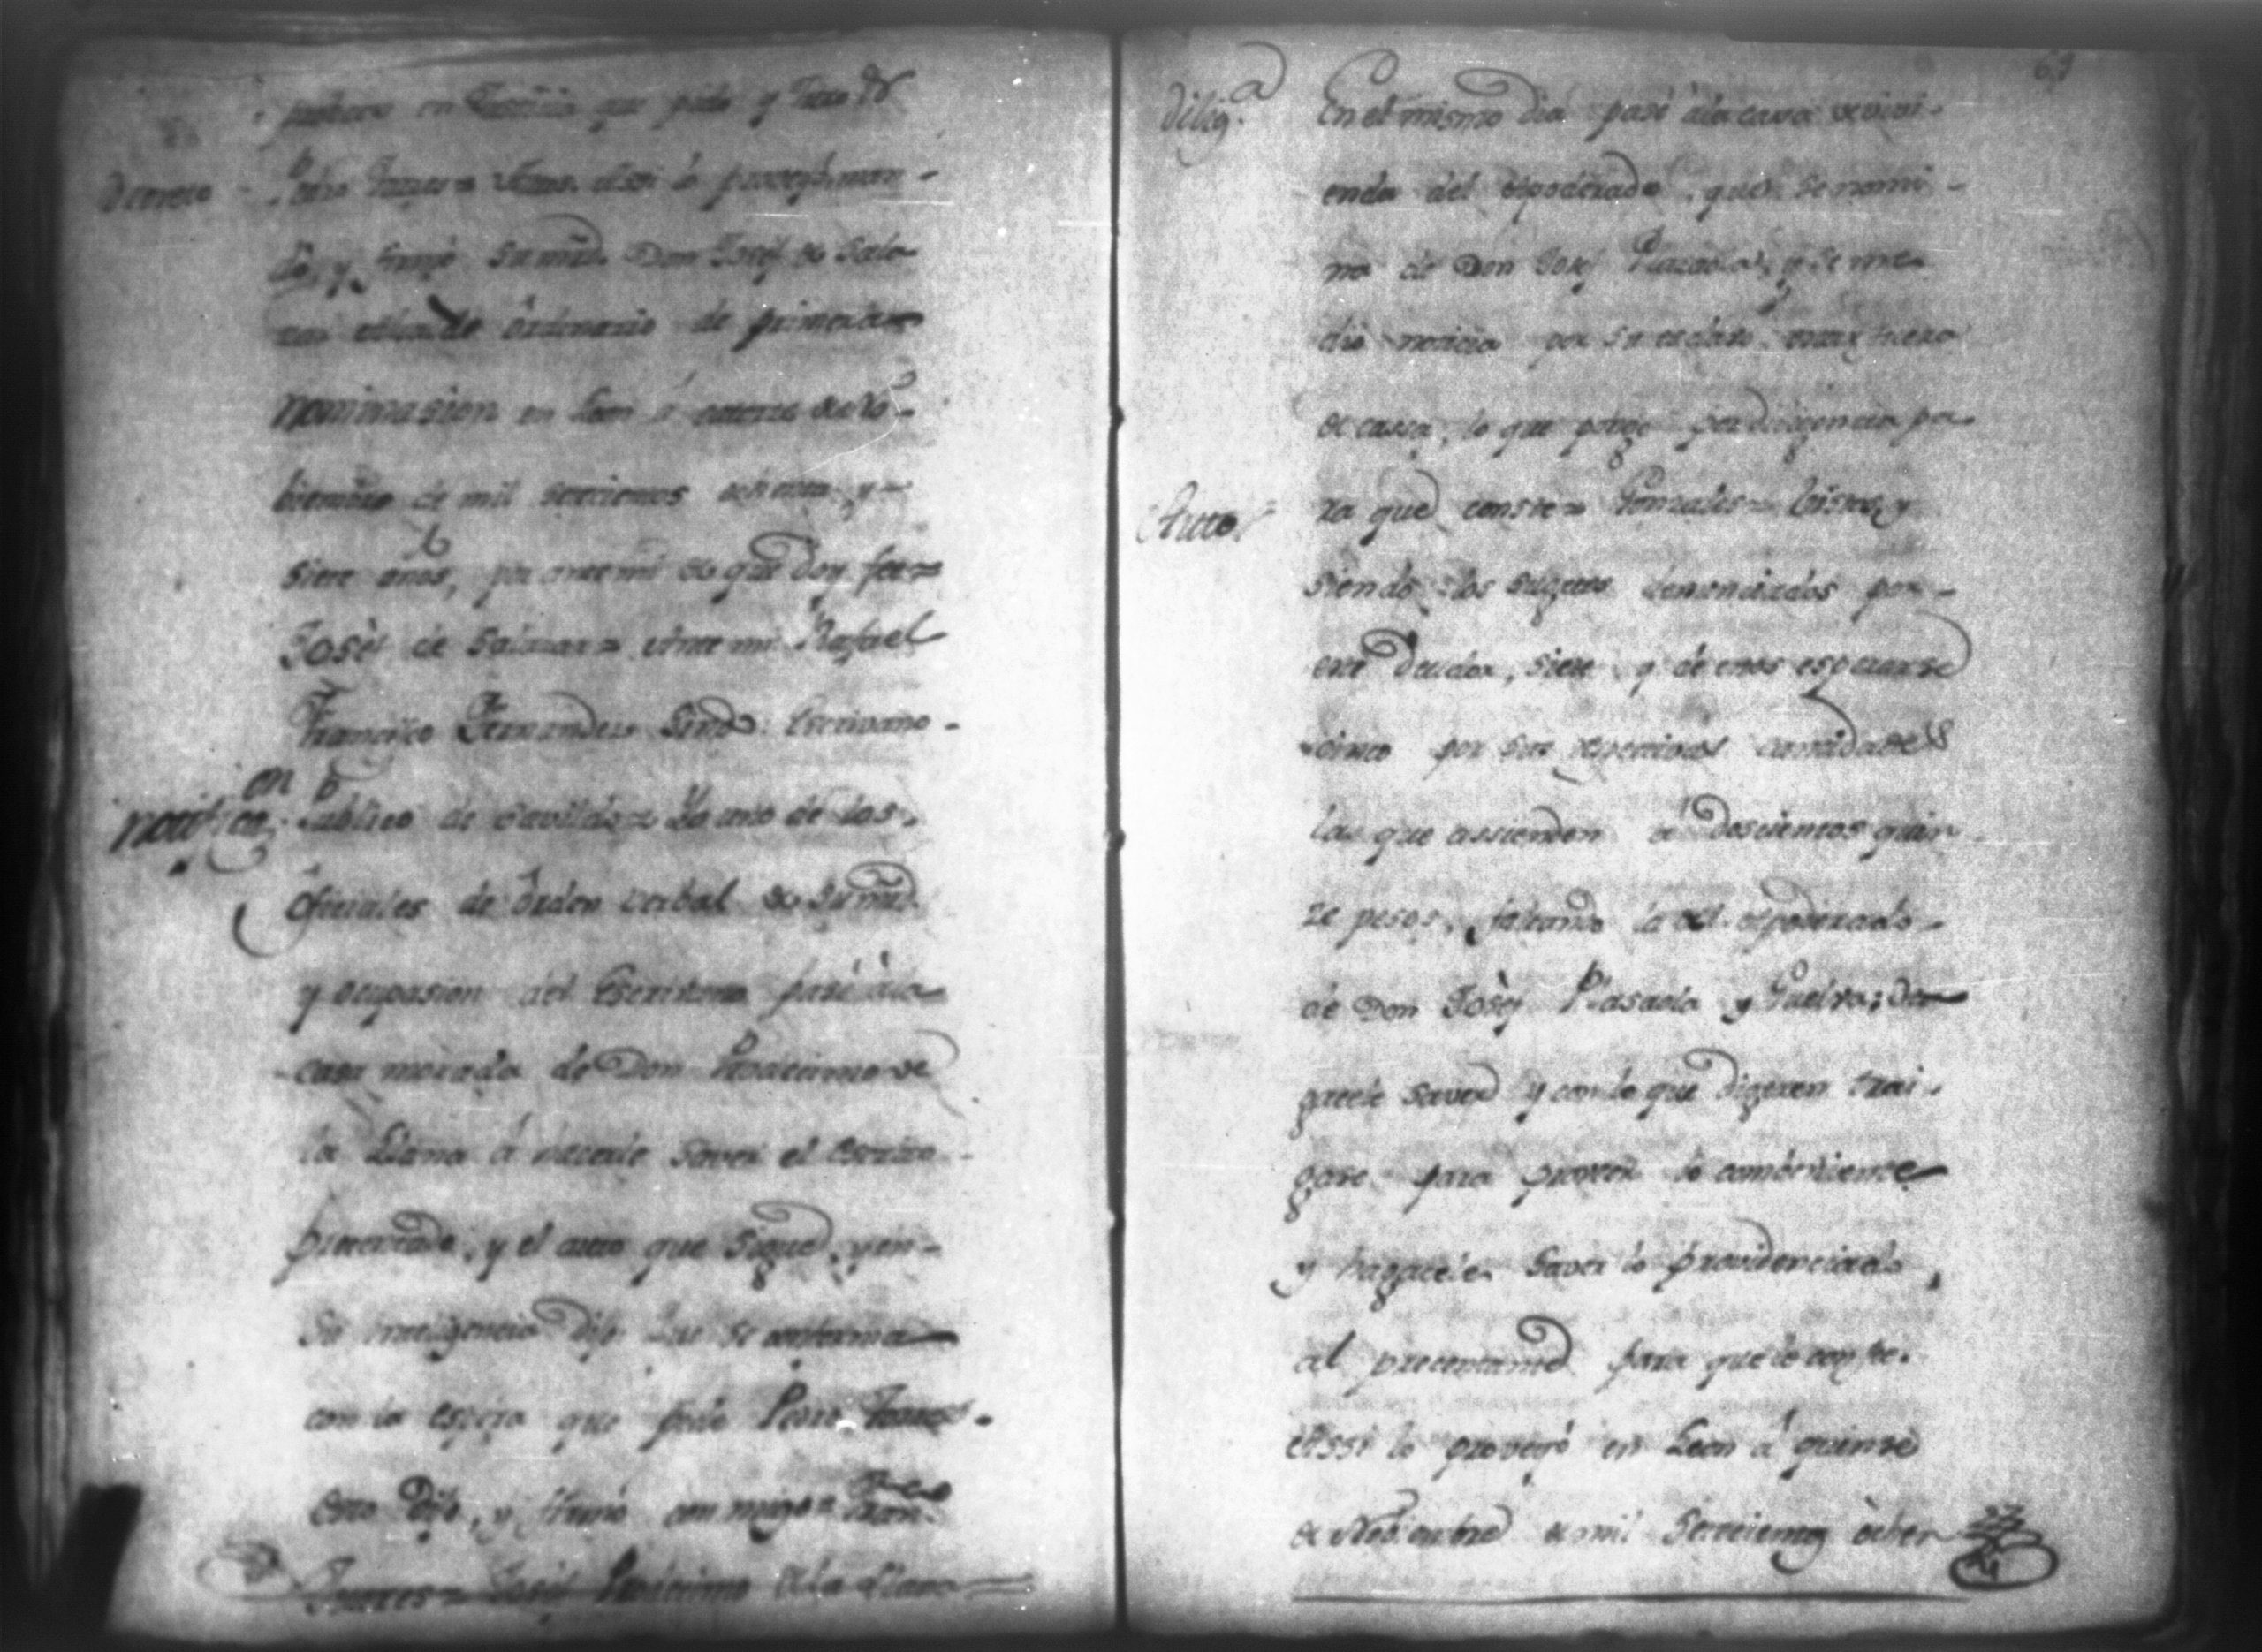 en Justicia que pido y Juro &
Decreto
Pedro Torres = Autos. Assi lo proveyó, man-
dó, y firmó su mrd. Don Josef de Sala-
zar Alcalde ordinario de primera
nominasion en Leon á catorce de No-
biembre de mil setecientos ochenta y
siete años, por ante mi de que doy fee =
Josef de Salazar = Ante mi Rafael
Francisco Fernandez Escrivano
notificaen
Publico de Cavildo = Yo uno de los
oficiales de órden verbal de su mrd.
y ocupasion del Escrivano pasé á la
casa morada de Don Prodecimo de
la Llana á hacerle saver el escrito
precentado, y el auto que sigue, y en
su inteligencia dijo que se conforma
con la espera que pide Pedro Torres
Esto dijo, y firmó conmigo =
Torres = Josef Prodecimo de la Llana =
69
Diliga
En el mismo dia pasé á la casa vivi-
enda del apoderado, que se nomi-
na de Don Josef Plazaola, y se me
dió noticia por su esclavo, estar fuera
de cassa, lo que pongo por diligencia pa-
Auto
ra que conste = Gonzales = Vistos, y
siendo los sugetos denunciados por
este Deudor, siete y de estos esperarse
cinco por sus respectivas cantidades
las que assienden á doscientos quin-
ze pesos, faltando la del apoderado
de Don Josef Plasaola y Huelva;
gacele saver y con lo que digeren trai-
gase para proveer lo combeniente
y hagacele saver lo providenciado
al precentante para que le conste.
Assi lo proveyó en Leon á quinse
de Nobiembre de mil setecientos ochen